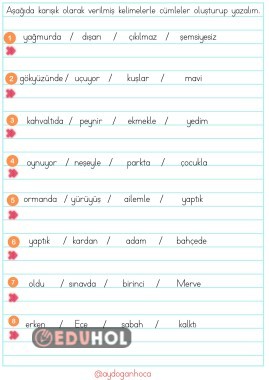 Aşağıda karışık olarak verilmiş kelimelerle cümleler oluşturup yazalım.
1 yağmurda / dışarı / çıkılmaz / şemsiyesiz
2 gökyüzünde / uçuyor / kuşlar / mavi
3 kahvaltıda / peynir / ekmekle / yedim
4 oynuyor / neşeyle / parkta / çocukla
5 ormanda / yürüyüş / ailemle / yaptık
6 yaptık / kardan / adam / bahçede
7 oldu / sınavda / birinci / Merve
8 erken / Ece / sabah / kalktı
EDUHOL
@aydoganhoca